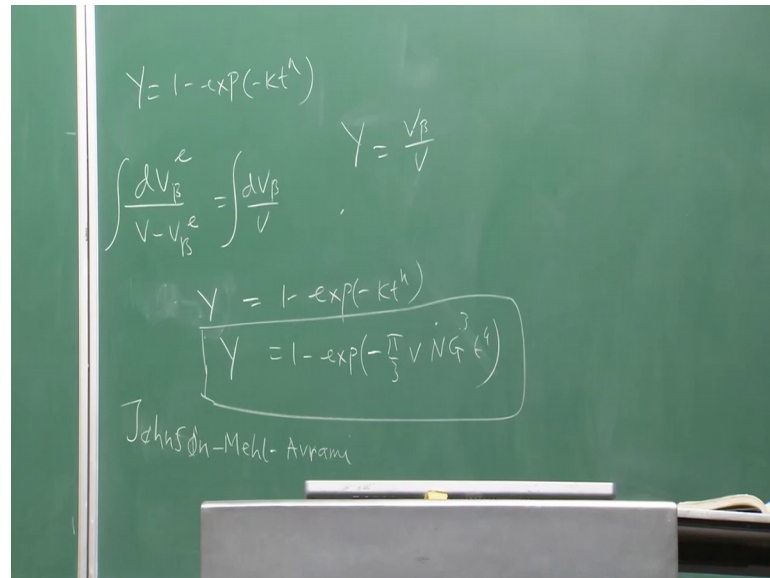 Y = 1 - exp(-kt^n)
Y = Vβ/V
∫ dVβ^e/(V - Vβ^e) = ∫ dVβ/V
Y = 1 - exp(-kt^n)
Y = 1 - exp(-π/3 V Ṅ G^3 t^4)
Johnson-Mehl-Avrami